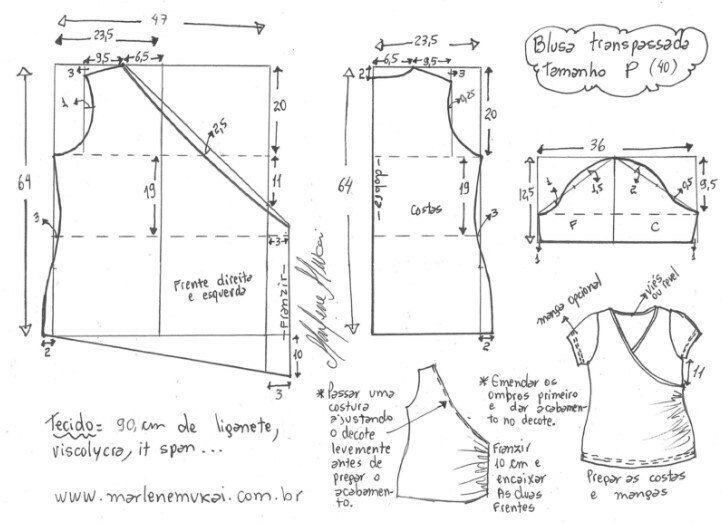 Blusa transpassada
tamanho P (40)
47
23,5
9,5
6,5
3
1
2,5
20
64
19
11
3
3
Frente direita
e esquerda
Franzir
2
10
3
Marlene Mukai
23,5
6,5
9,5
2
3
0,25
20
64
dobra
19
costas
3
2
36
12,5
1
1,5
2
0,5
9,5
F
C
1
1
manga opcional
viés
ou revel
11
Preparar as costas
e mangas
* Passar uma
costura
ajustando
o decote
levemente
antes de
pregar o
acabamento.
* Emendar os
ombros primeiro
e dar acabamen-
to no decote.
Franzir
10 cm e
encaixar
As duas
frentes
Tecido = 90, cm de liganete,
viscolycra, it span...
www.marlenemukai.com.br